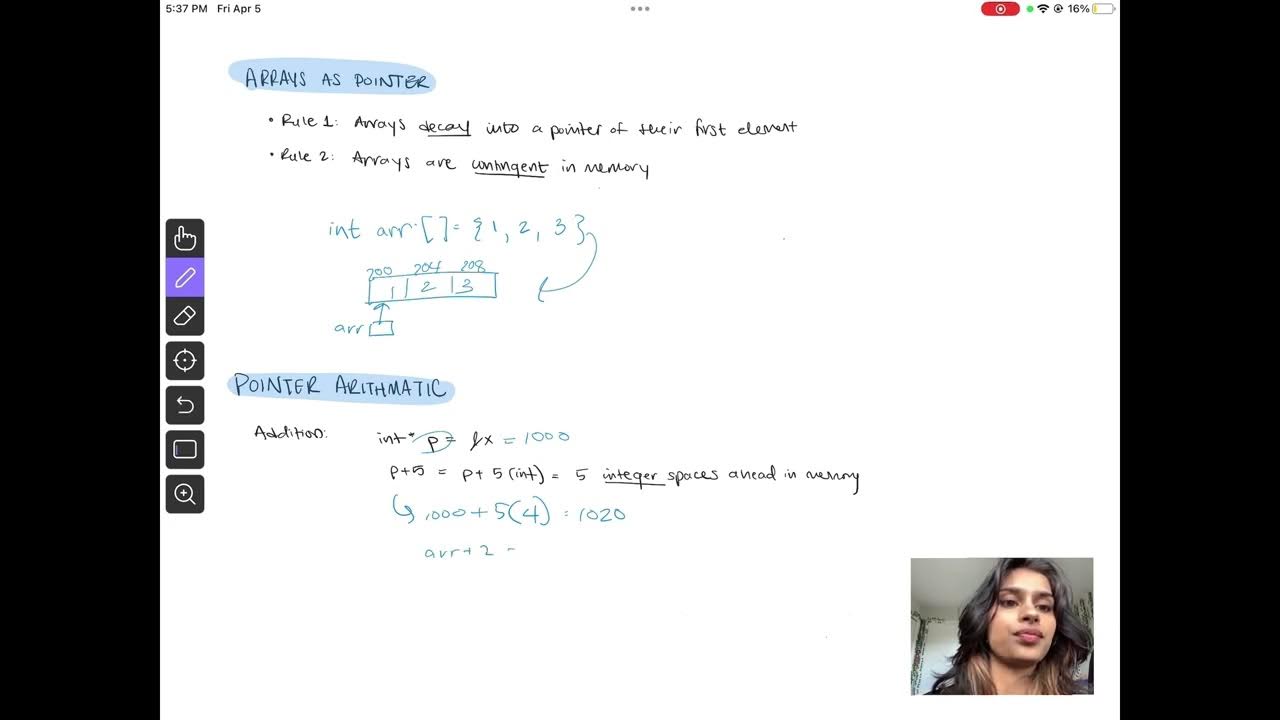 5:37 PM Fri Apr 5
16%
ARRAYS AS POINTER
• Rule 1: Arrays decay into a pointer of their first element
• Rule 2: Arrays are contingent in memory
int arr[] = {1, 2, 3}
200 204 208
1 | 2 | 3
arr
POINTER ARITHMATIC
Addition: int* p = &x = 1000
p+5 = p+ 5(int) = 5 integer spaces ahead in memory
1000 + 5(4) = 1020
arr+ 2 -